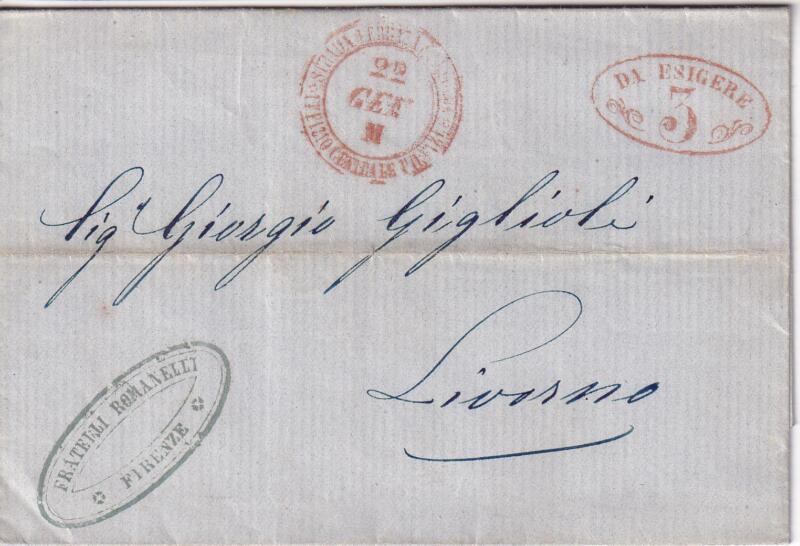 STRADA FERRATA
UFFIZIO CENTRALE
22
GEN
M
DA ESIGERE
3
Sigr Giorgio Giglioli
Livorno
FRATELLI ROMANELLI
FIRENZE